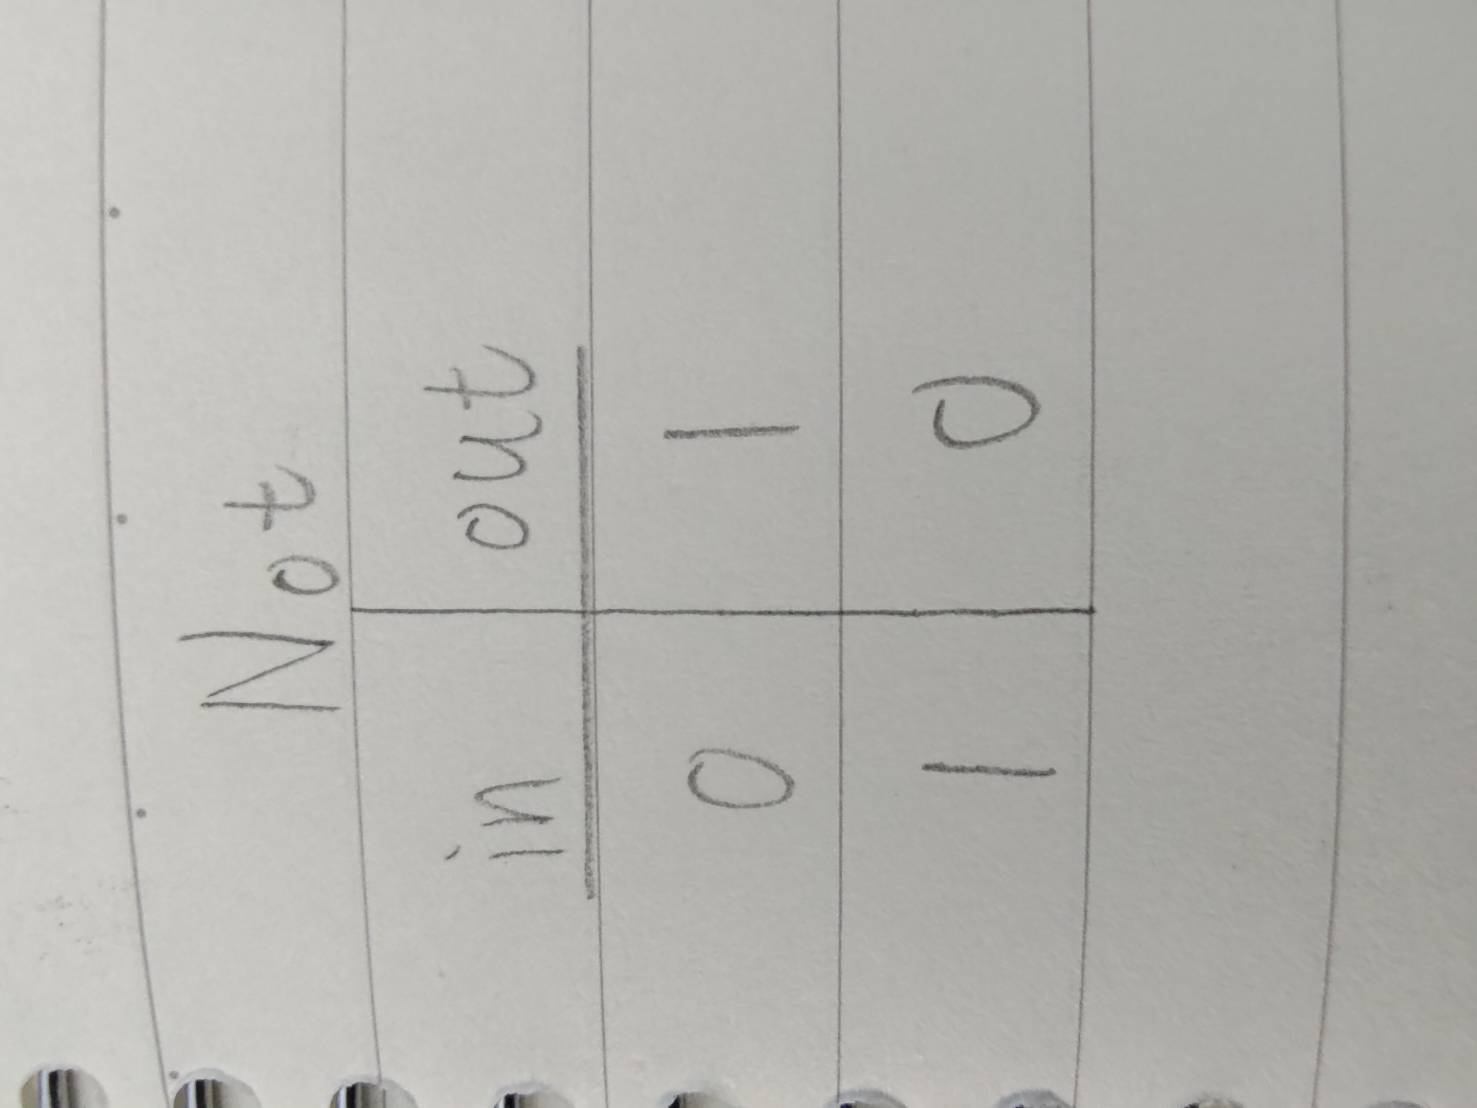 Not
in out
0 1
1 0